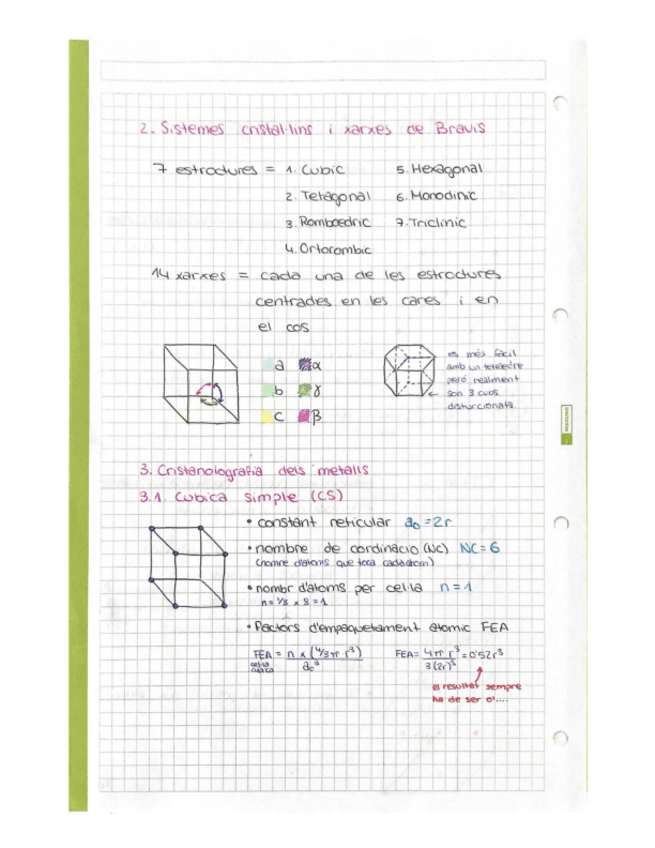 2. Sistemes cristal·lins i xarxes de Bravis
7 estroctures = 1. Cubic 5. Hexagonal
2. Tetagonal 6. Monoclinic
3. Romboedric 7. Triclinic
4. Ortorombic
14 xarxes = cada una de les estroctures
centrades en les cares i en
el cos
a α
b γ
c β
es més fàcil
amb un tetraedre
però realment
son 3 cubs
disturcionats.
3. Cristanolografia dels metalls
3.1. Cubica simple (CS)
• constant reticular a₀ = 2r
• nombre de cordinació (NC) NC = 6
(nomre d'atoms que toca cada atom)
• nombr d'atoms per cel·la n = 1
n = 1/8 x 8 = 1
• Factors d'empaquetament atomic FEA
FEA = n x (4/3 π r³) / a₀³ FEA = 4π r³ / 3(2r)³ = 0'52r³
cel·la
cubica
el resultat sempre
ha de ser 0'....